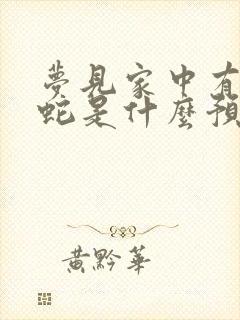 夢見家中有
蛇是什麼預
黃黔華